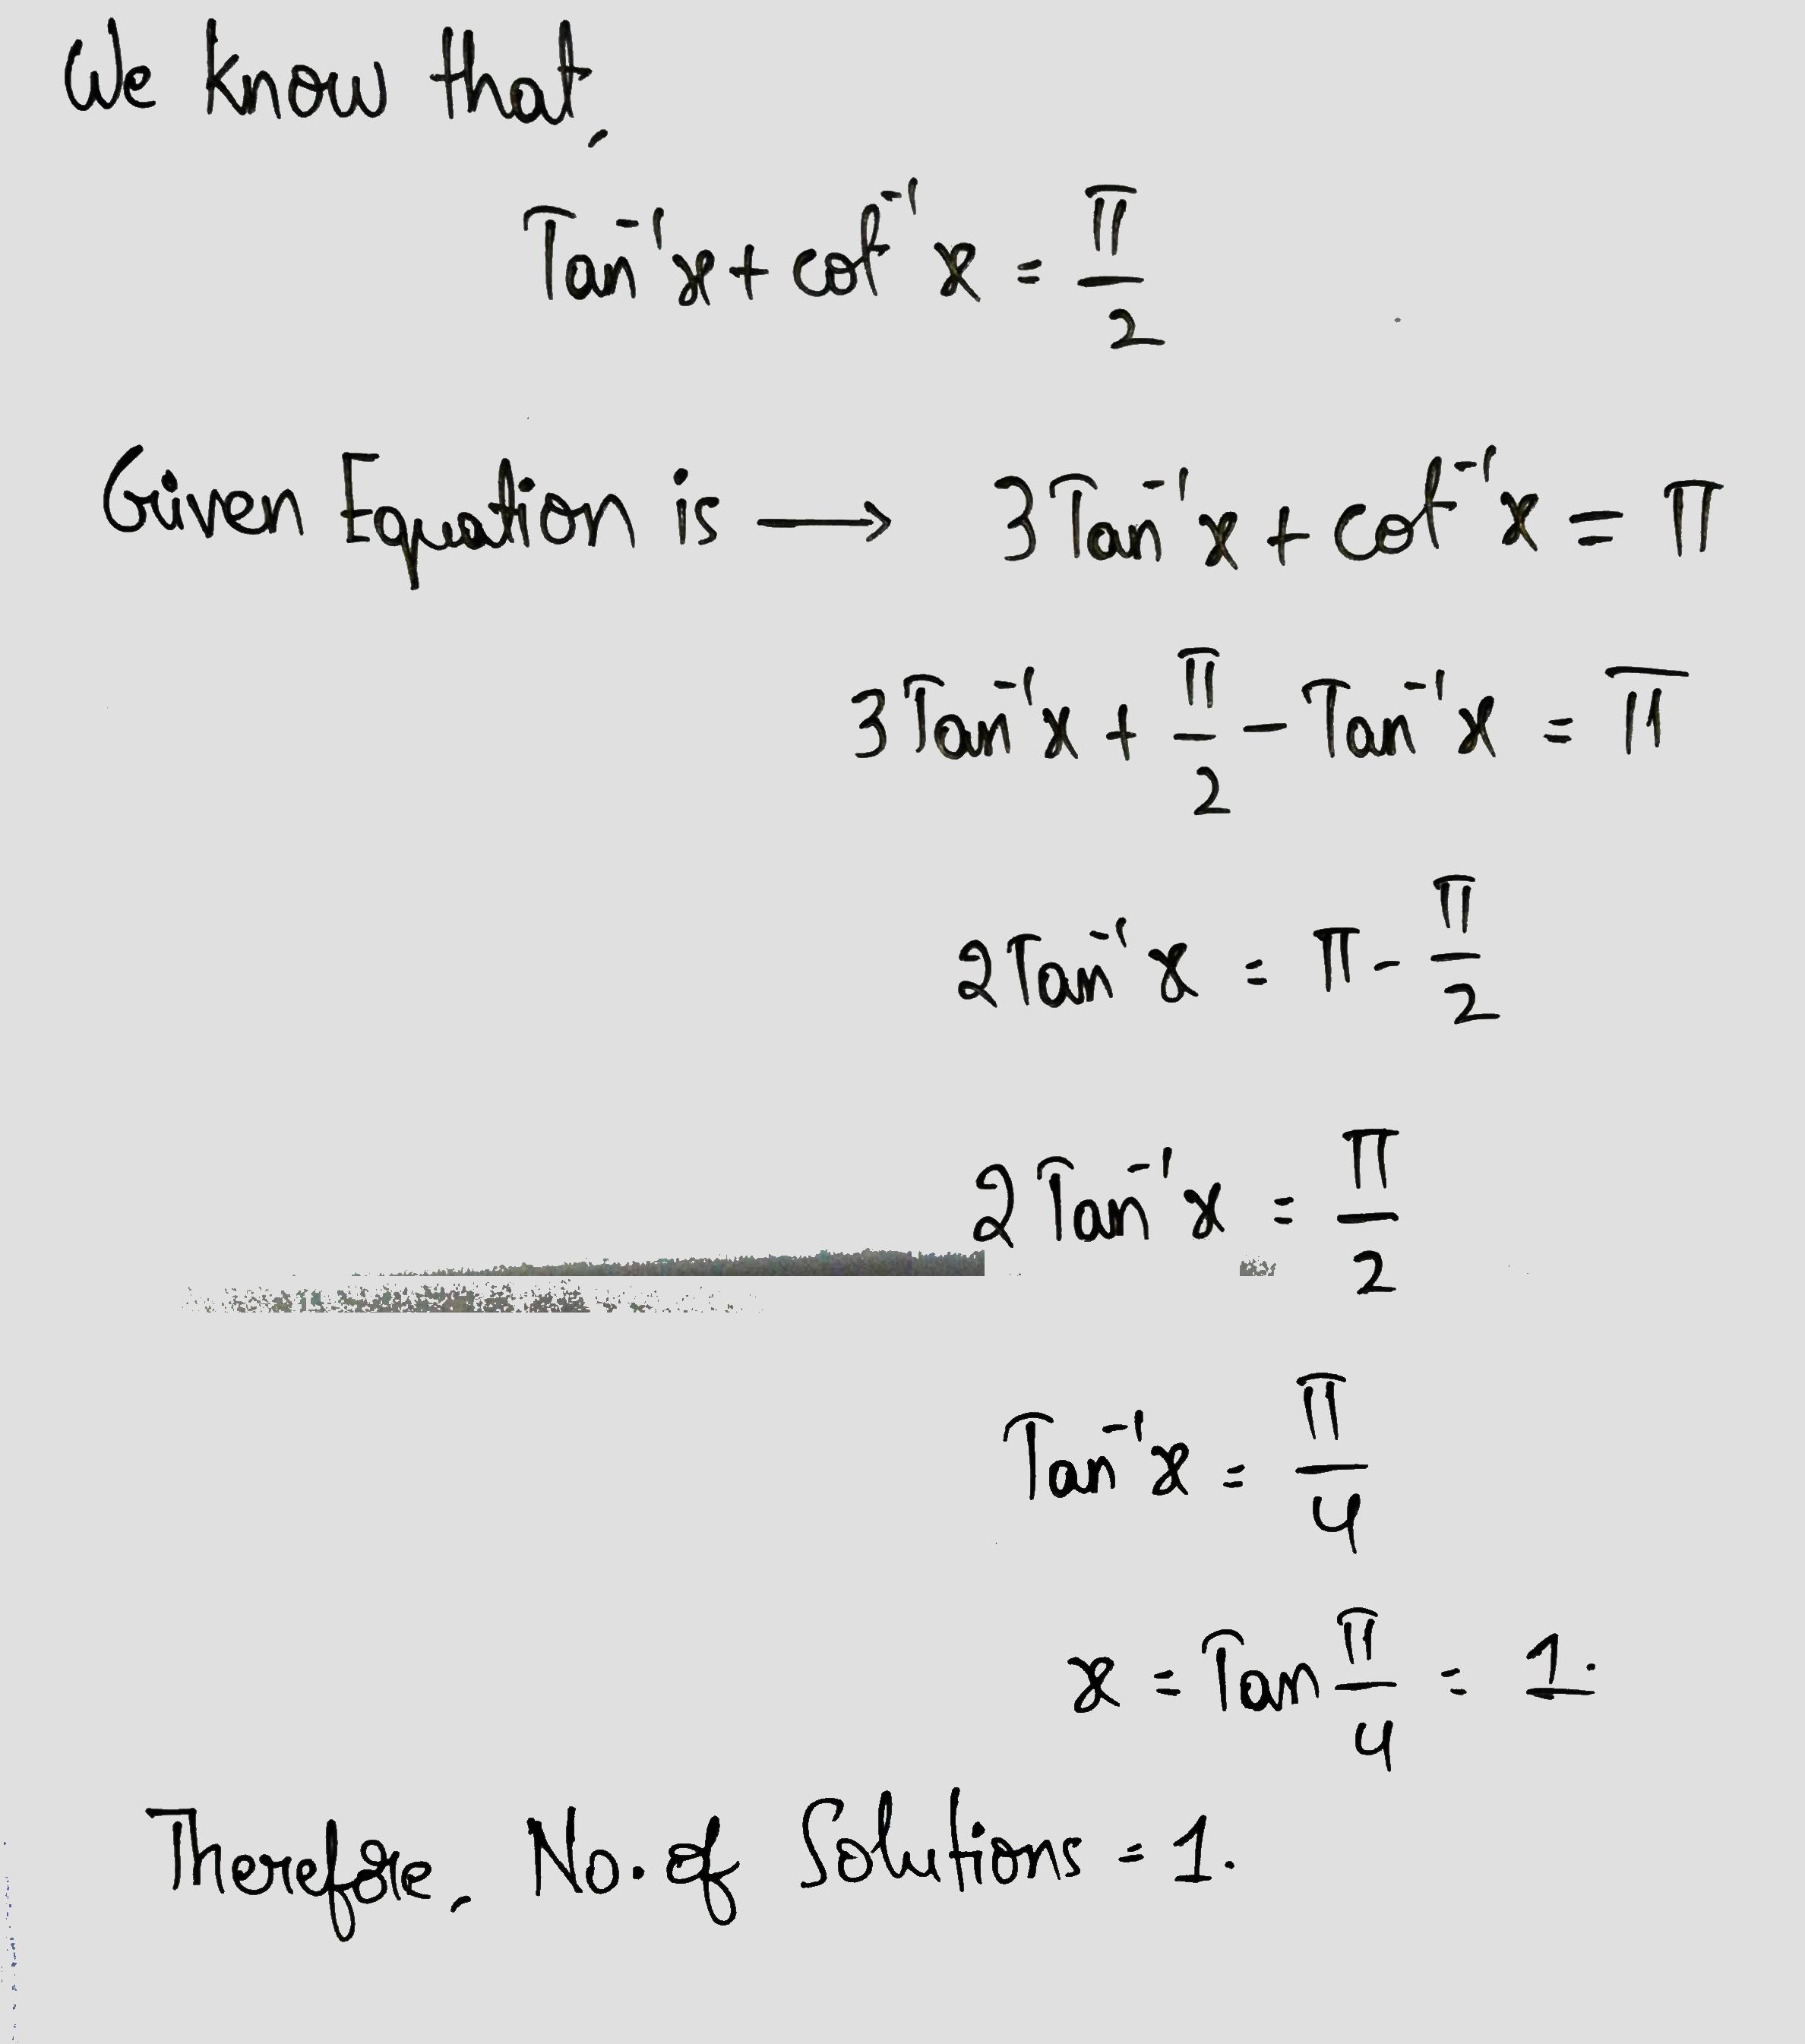 We know that,
Tan⁻¹x + cot⁻¹x = π/2
Given Equation is ⟶ 3Tan⁻¹x + cot⁻¹x = π
3Tan⁻¹x + π/2 - Tan⁻¹x = π
2Tan⁻¹x = π - π/2
2Tan⁻¹x = π/2
Tan⁻¹x = π/4
x = Tan π/4 = 1.
Therefore, No. of Solutions = 1.